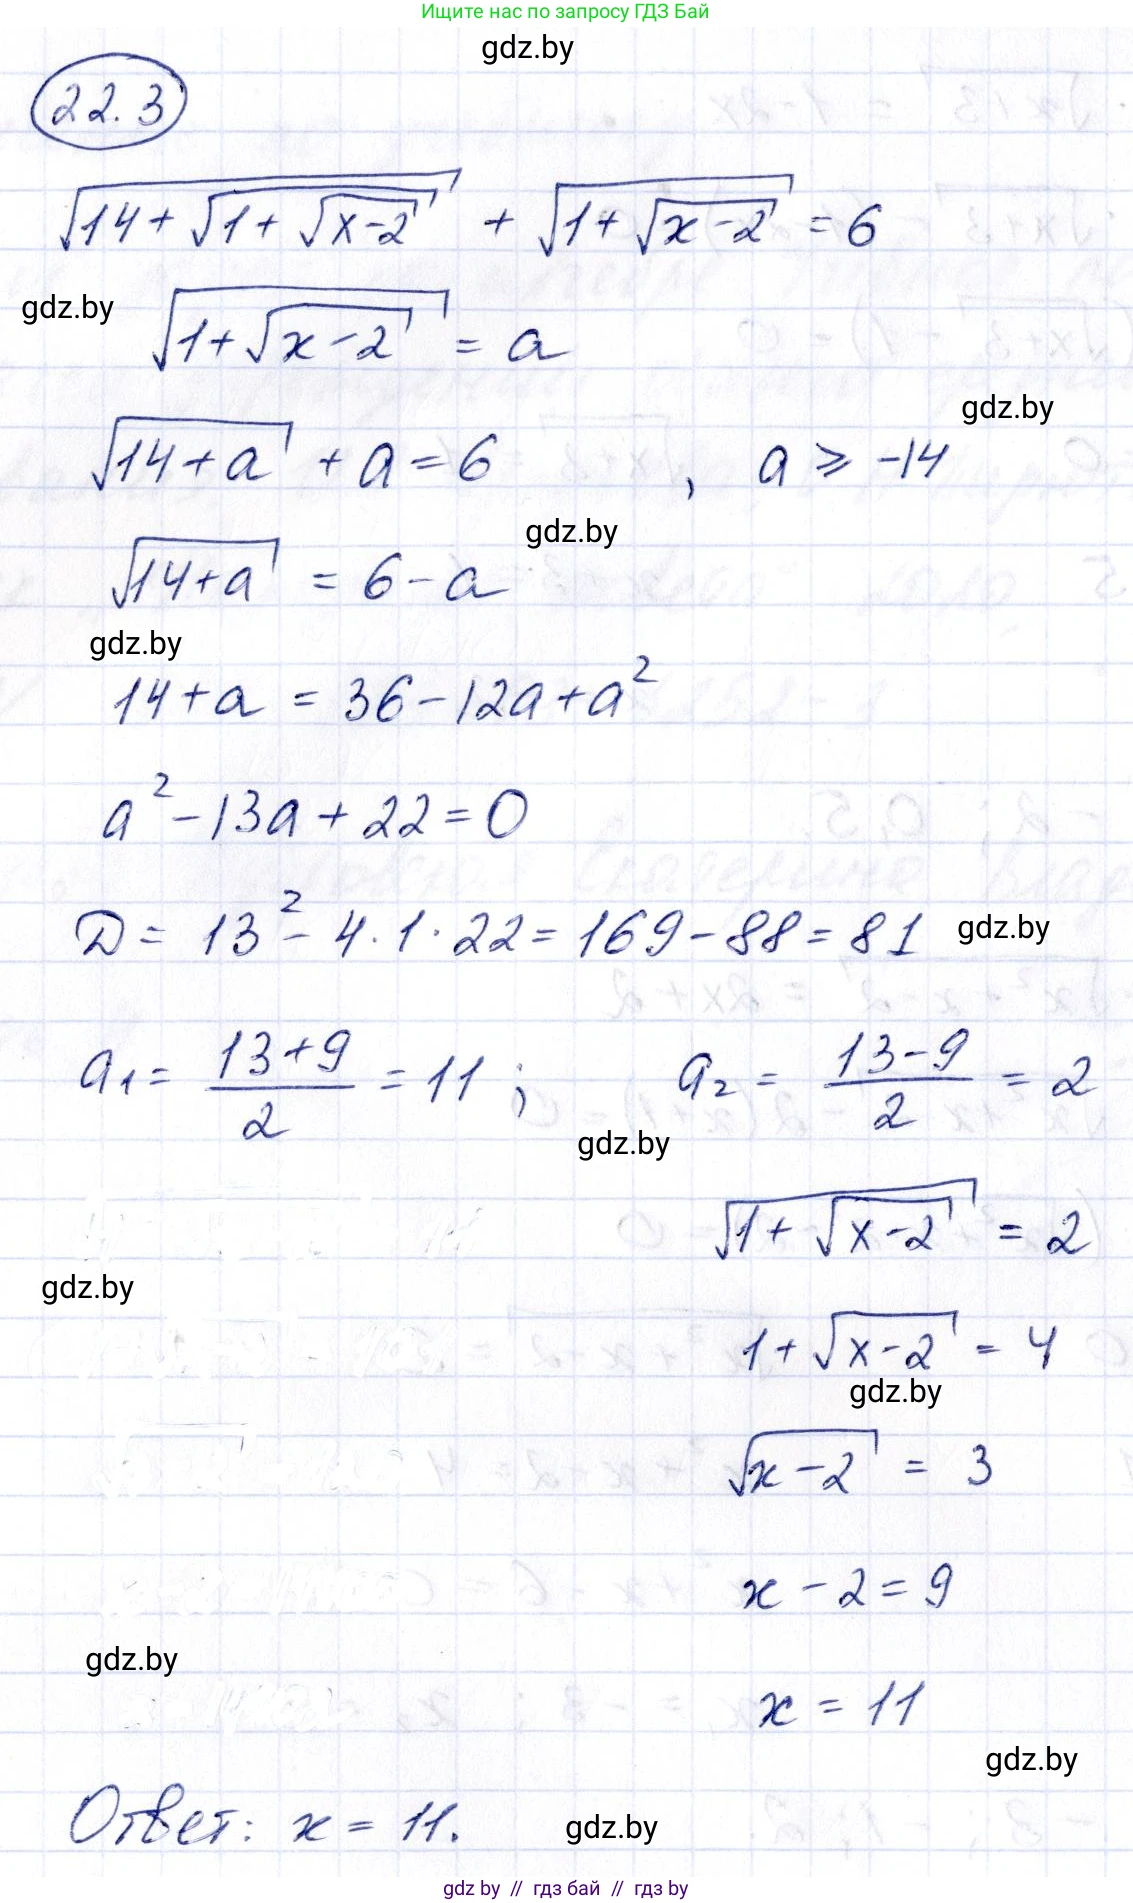 Ищите нас по запросу ГДЗ Бай
gdz.by
22.3
√(14+√(1+√(x-2))) + √(1+√(x-2)) = 6
gdz.by
√(1+√(x-2)) = a
gdz.by
√(14+a) + a = 6 , a ⩾ -14
gdz.by
√(14+a) = 6-a
gdz.by
14+a = 36-12a+a²
a²-13a+22=0
D = 13²-4·1·22=169-88=81
gdz.by
a₁ = (13+9)/2 = 11 ; a₂ = (13-9)/2 = 2
gdz.by
√(1+√(x-2)) = 2
gdz.by
1+√(x-2) = 4
gdz.by
√(x-2) = 3
x-2=9
gdz.by
x = 11
gdz.by
Ответ: x = 11.
gdz.by
gdz by // гдз бай // гдз by